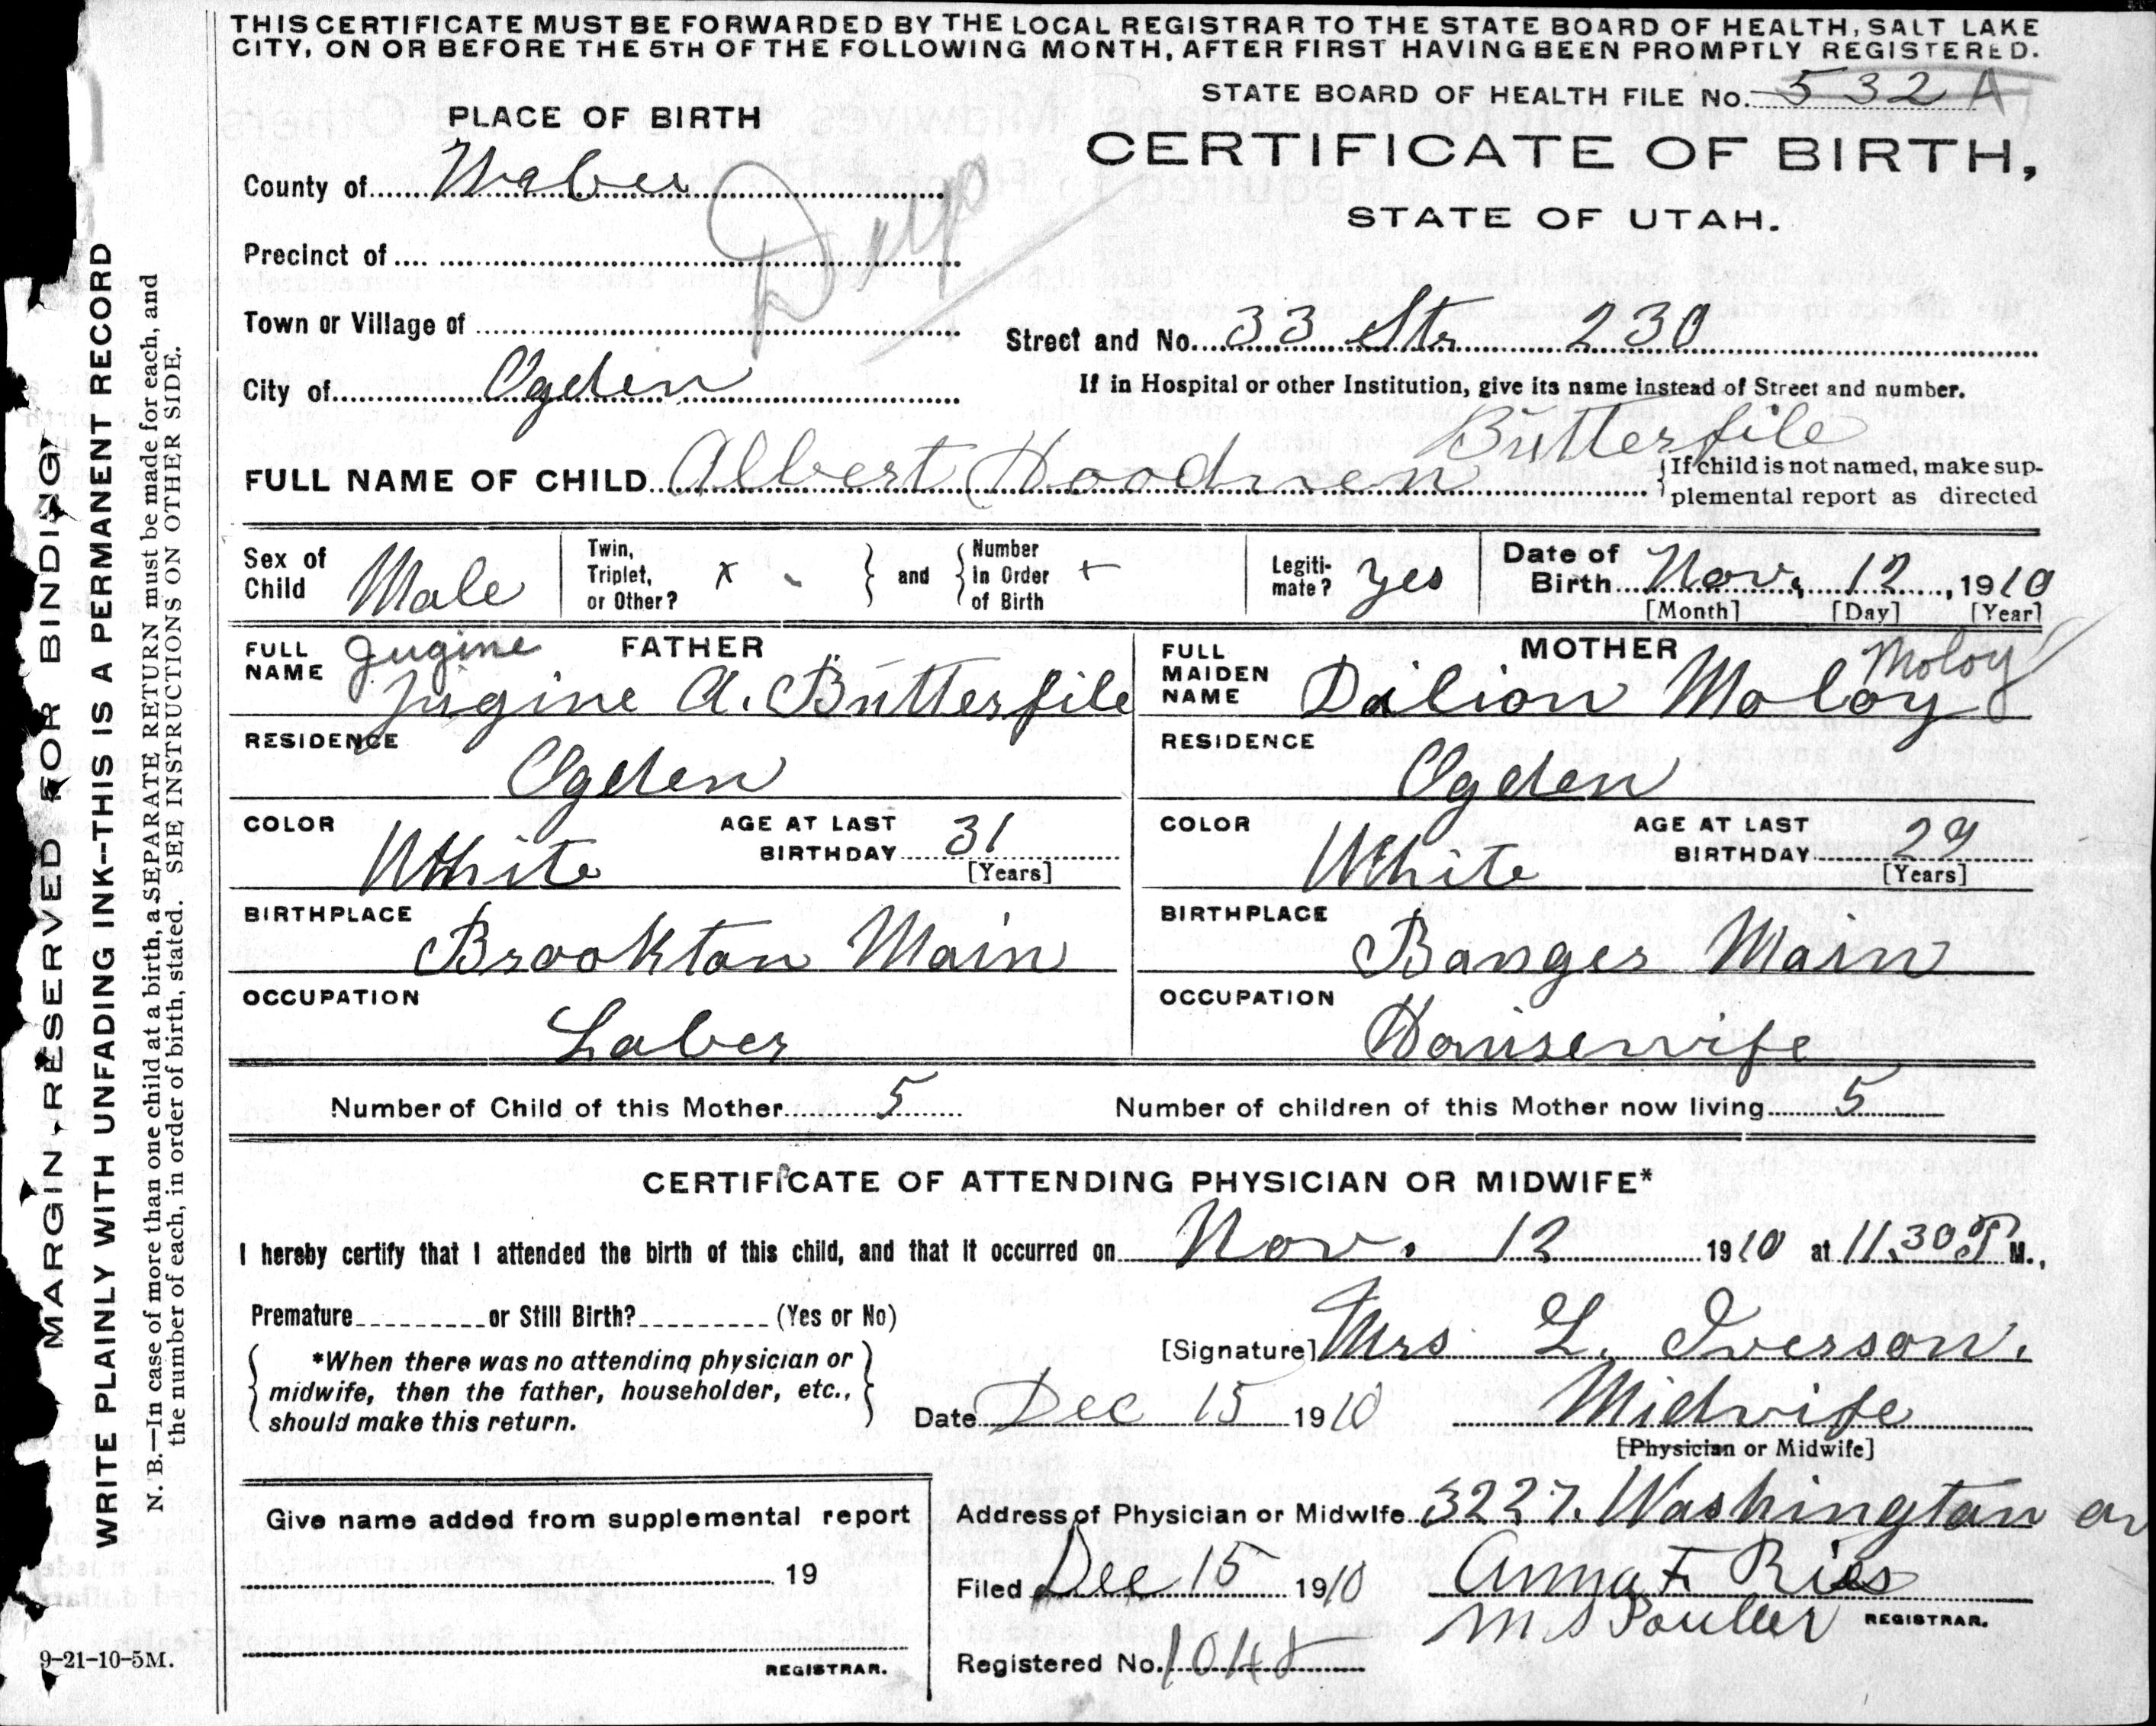 THIS CERTIFICATE MUST BE FORWARDED BY THE LOCAL REGISTRAR TO THE STATE BOARD OF HEALTH, SALT LAKE
CITY, ON OR BEFORE THE 5TH OF THE FOLLOWING MONTH, AFTER FIRST HAVING BEEN PROMPTLY REGISTERED.
STATE BOARD OF HEALTH FILE No. 532 A
PLACE OF BIRTH
CERTIFICATE OF BIRTH,
STATE OF UTAH.
County of Weber
Dup
Precinct of
Town or Village of
Street and No. 33 Str 230
City of Ogden
If in Hospital or other Institution, give its name instead of Street and number.
Butterfile
FULL NAME OF CHILD Albert
If child is not named, make sup-
plemental report as directed
Sex of Child Male
Twin, Triplet, or Other? x -
and
Number in Order of Birth +
Legiti-mate? yes
Date of Birth Nov. 12, 1910
[Month] [Day] [Year]
FATHER
FULL NAME Jugine
Jugine A. Butterfile
RESIDENCE
Ogden
COLOR
White
AGE AT LAST BIRTHDAY 31
[Years]
BIRTHPLACE
Brookton Main
OCCUPATION
Laber
MOTHER
FULL MAIDEN NAME Moloy
Dilion Moloy
RESIDENCE
Ogden
COLOR
White
AGE AT LAST BIRTHDAY 29
[Years]
BIRTHPLACE
Banger Main
OCCUPATION
Housewife
Number of Child of this Mother 5
Number of children of this Mother now living 5
CERTIFICATE OF ATTENDING PHYSICIAN OR MIDWIFE*
I hereby certify that I attended the birth of this child, and that it occurred on Nov. 12 1910 at 11.30 P M.,
Premature or Still Birth? (Yes or No)
[Signature] Mrs L. Iverson.
*When there was no attending physician or
midwife, then the father, householder, etc.,
should make this return.
Date Dec 15 1910
Midwife
[Physician or Midwife]
Give name added from supplemental report
19
REGISTRAR.
Address of Physician or Midwife 3227. Washington av
Filed Dec 15 1910
Anna F. Ries
M S Poulter
REGISTRAR.
Registered No. 1048
9-21-10-5M.
MARGIN RESERVED FOR BINDING
WRITE PLAINLY WITH UNFADING INK--THIS IS A PERMANENT RECORD
N. B.—In case of more than one child at a birth, a SEPARATE RETURN must be made for each, and
the number of each, in order of birth, stated. SEE INSTRUCTIONS ON OTHER SIDE.